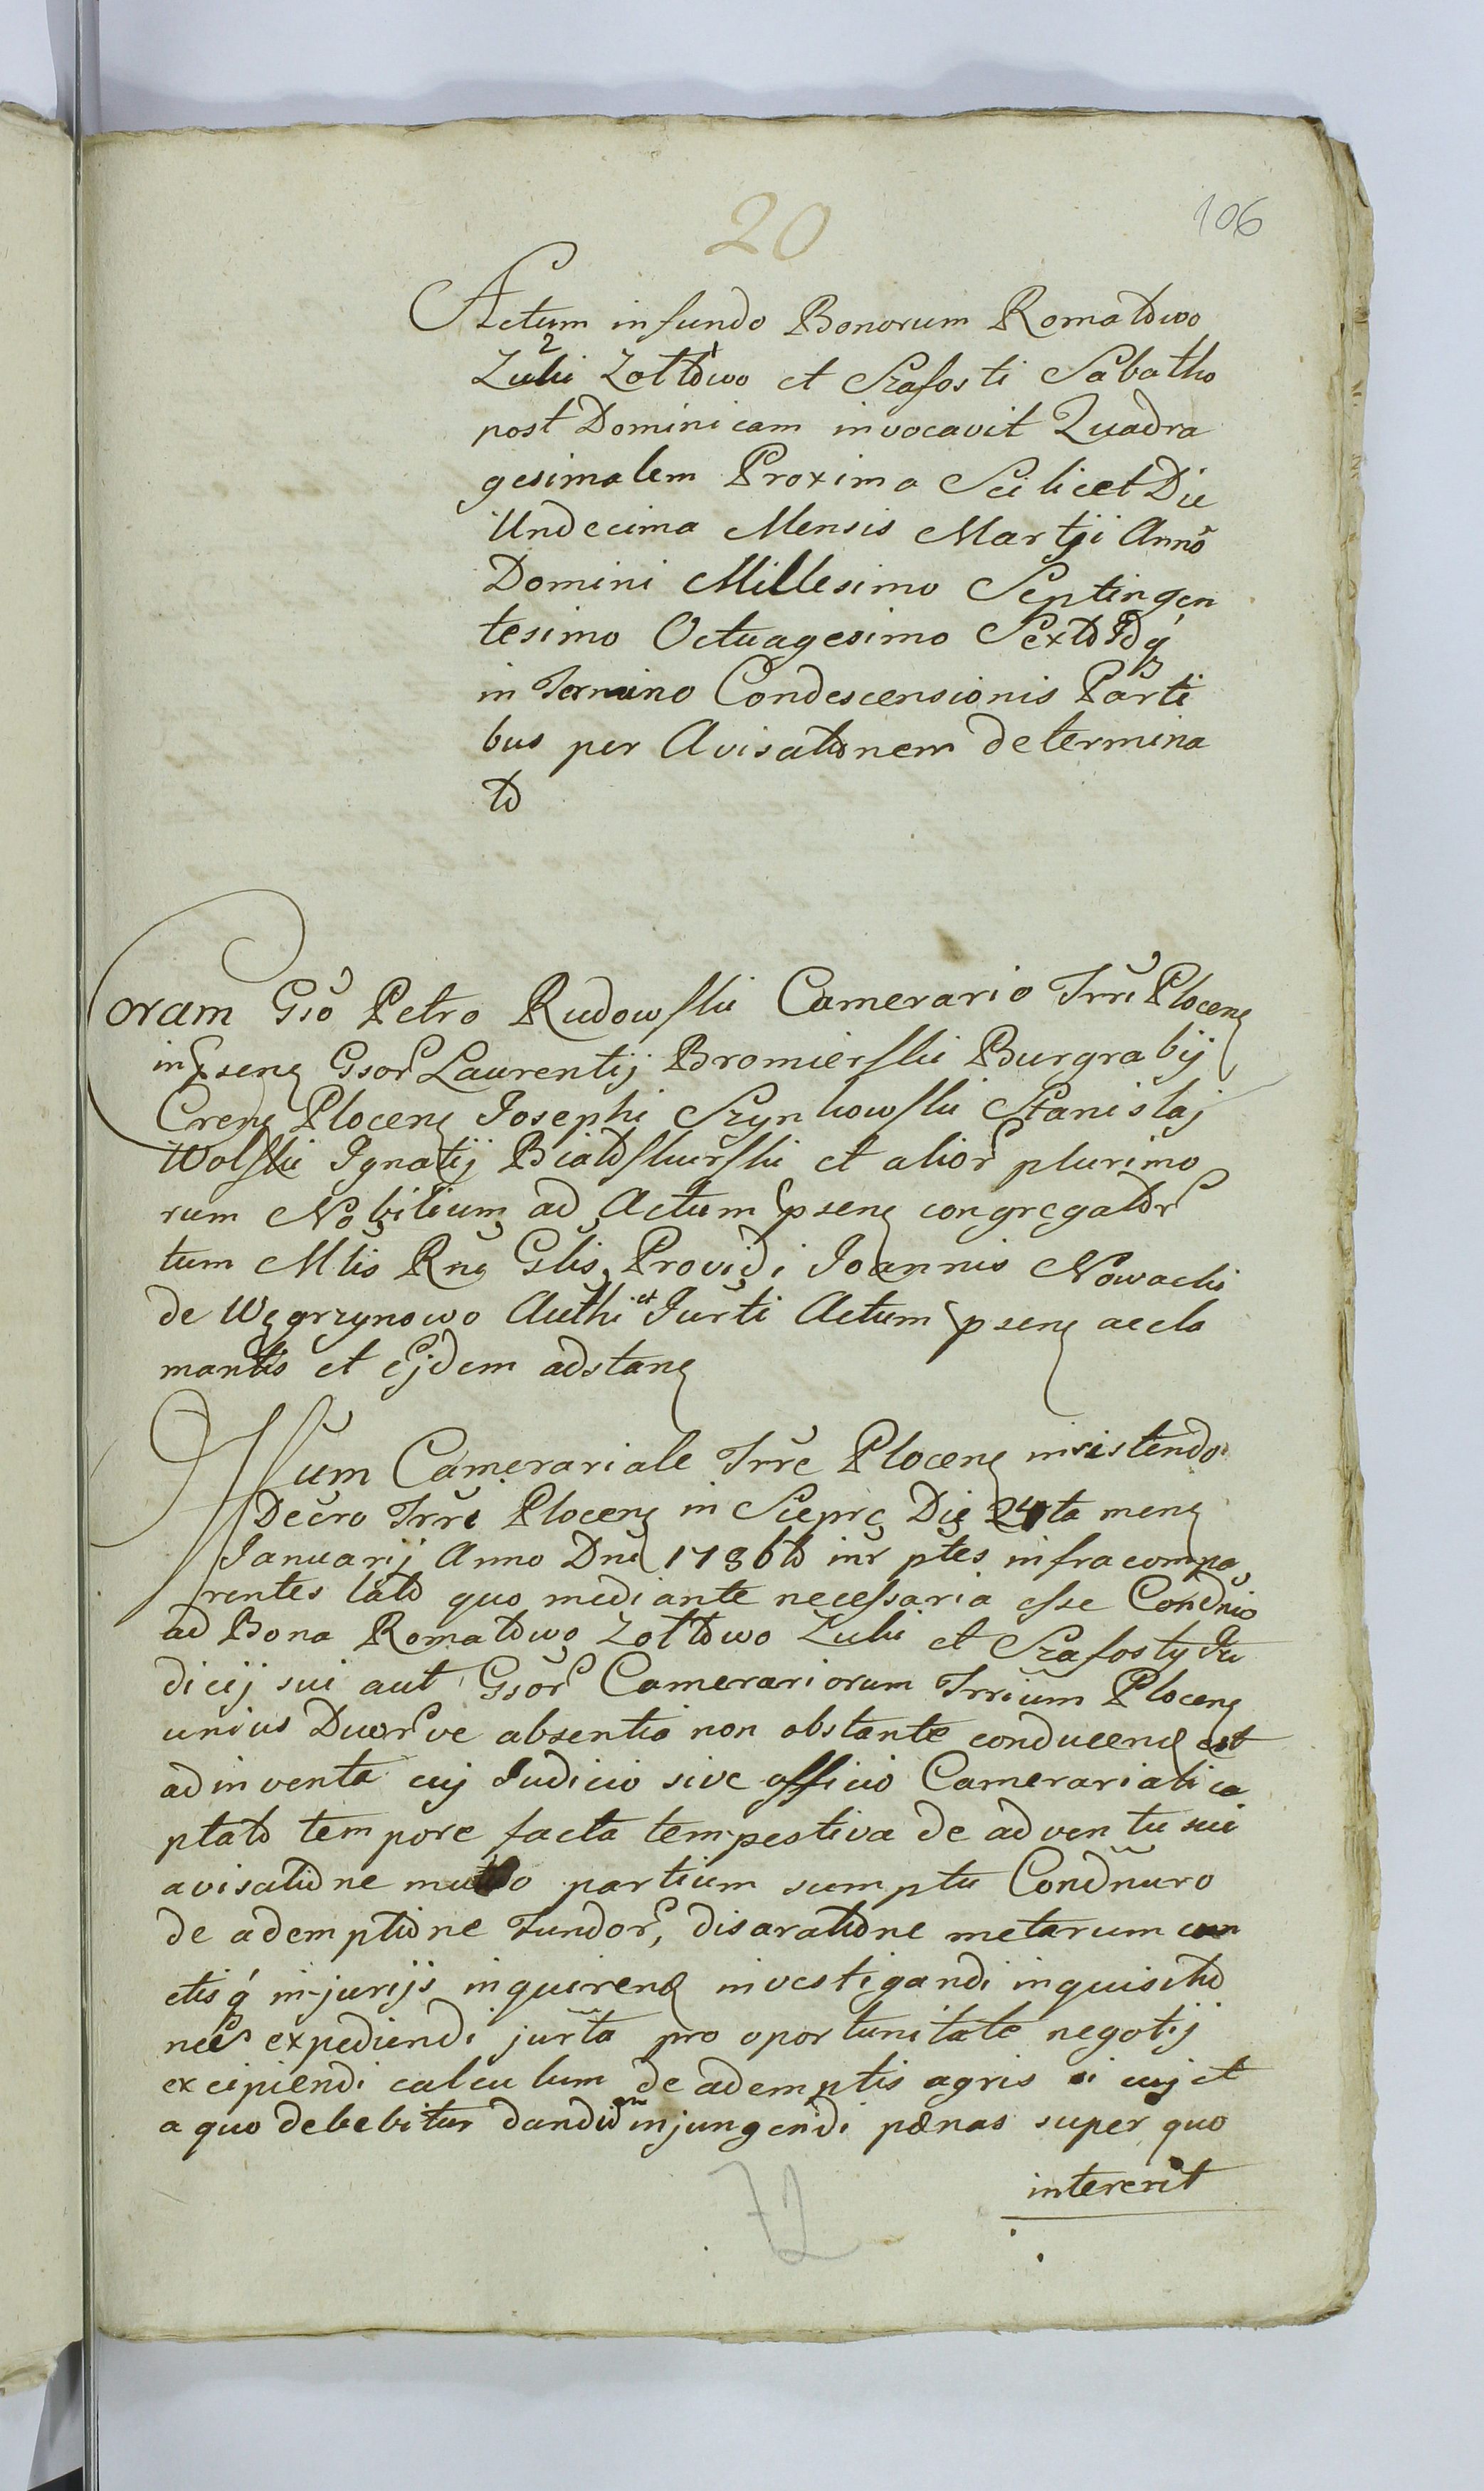 20
106
Actum in fundo Bonorum Romatowo
2 1
Zuki Zottowo et Szafosti Sabatho
post Dominicam invocavit Quadra
gesimalem Proxima Scilicet Die
Undecima Mensis Martij Anno
Domini Millesimo Septingen
tesimo Octuagesimo Sexto
in Termino Condescensionis Parti
bus per Avisationem determina
to
Coram Gso Petro Rudowski Camerario Trri Plocen
in psen Gsor Laurentij Bromierski Burgrabij
Cren Plocen Josephi Szynkowski Stanislaj
Wolski Ignatij Białoskurski et alior plurimo
rum Nobilium ad Actum psen congregator
tum Mlis Rn Glis Providi Joannis Nowacki
de Węgrzynowo Authi et Jurti Actum psen accla
mantis et Ejdem adstan
Camerariale Trre Plocen insistendo
Decro Trri Plocen in Sieprc Die 24ta men
Januarij Anno Dni 1786to inr ptes infracompa
rentes lato quo mediante necessaria esse Condnio
ad Bona Romatowo Zottowo Zuki et Szafosty Ju
dicij sui aut Gsor Camerariorum Trrium Plocen
unius Duor ve absentia non obstante conducend est
adinventa cuj Judicio sive officio Camerariali ca
ptato tempore facta tempestiva de adventu sui
avisatione mutuo partium sumptu Condnuro
de ademptione Fundor, disaratione metarum cun
ctisq injurijs inquirend investigandi inquisitio
nes expediendi jurta pro oportunitate negotij
excipiendi calculum de ademptis agris si cuj et
a quo debebitur dandi injungendi pœnas super quo
intererit
72